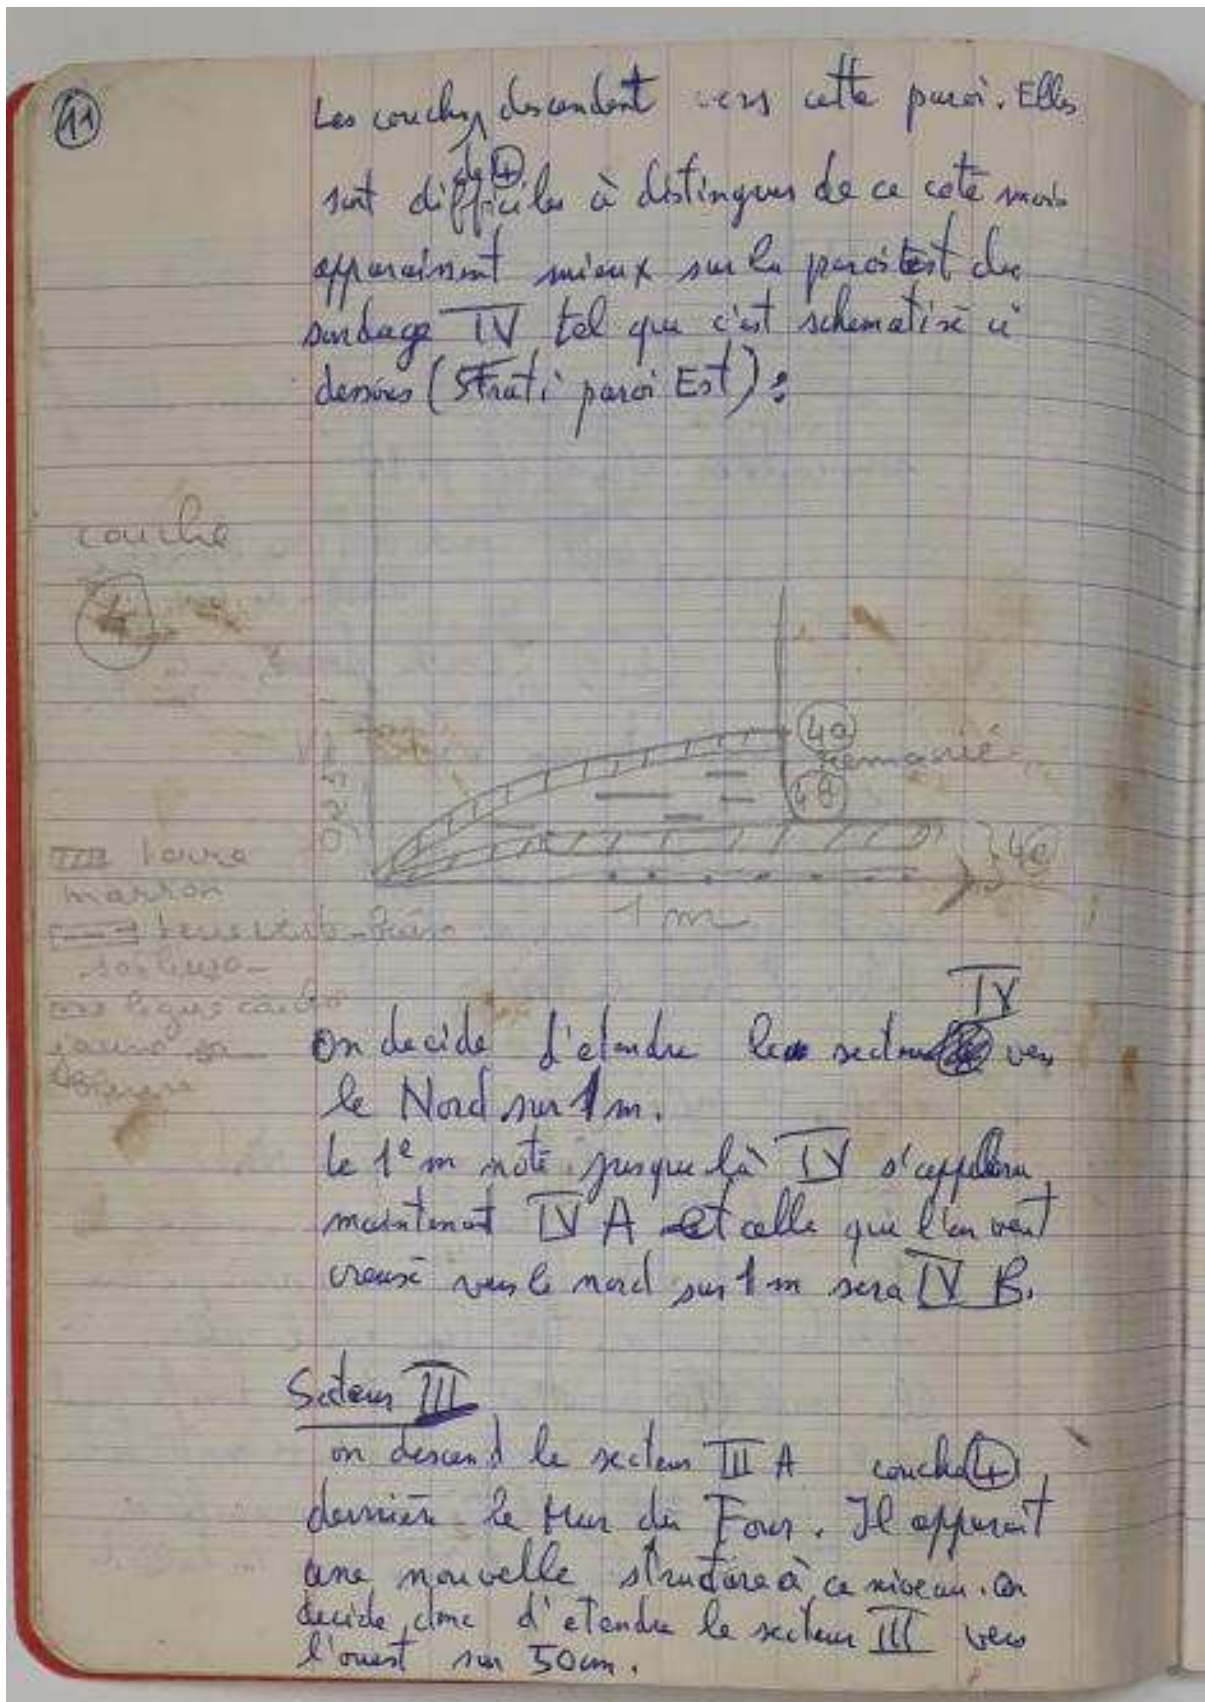 11
Les couches descendent vers cette paroi. Elles
de 4
sont difficiles à distinguer de ce coté mais
apparaissent mieux sur la paroi Est du
sondage IV tel que c'est schematisé ci
dessous (Strati paroi Est) :
couche
4
4a
remanié
4B
0,25
4c
1 m
terre
marron
terre verte
IV
On decide d'etendre le secteur vers
le Nord sur 1 m.
Le 1e m noté jusque là IV s'appellera
maintenant IV A et celle que l'on veut
creusé vers le nord sur 1 m sera IV B.
Secteur III
on descend le secteur III A couche 4
derrière le Mur du Four. Il apparait
une nouvelle structure à ce niveau. On
decide donc d'etendre le secteur III vers
l'ouest sur 50cm.